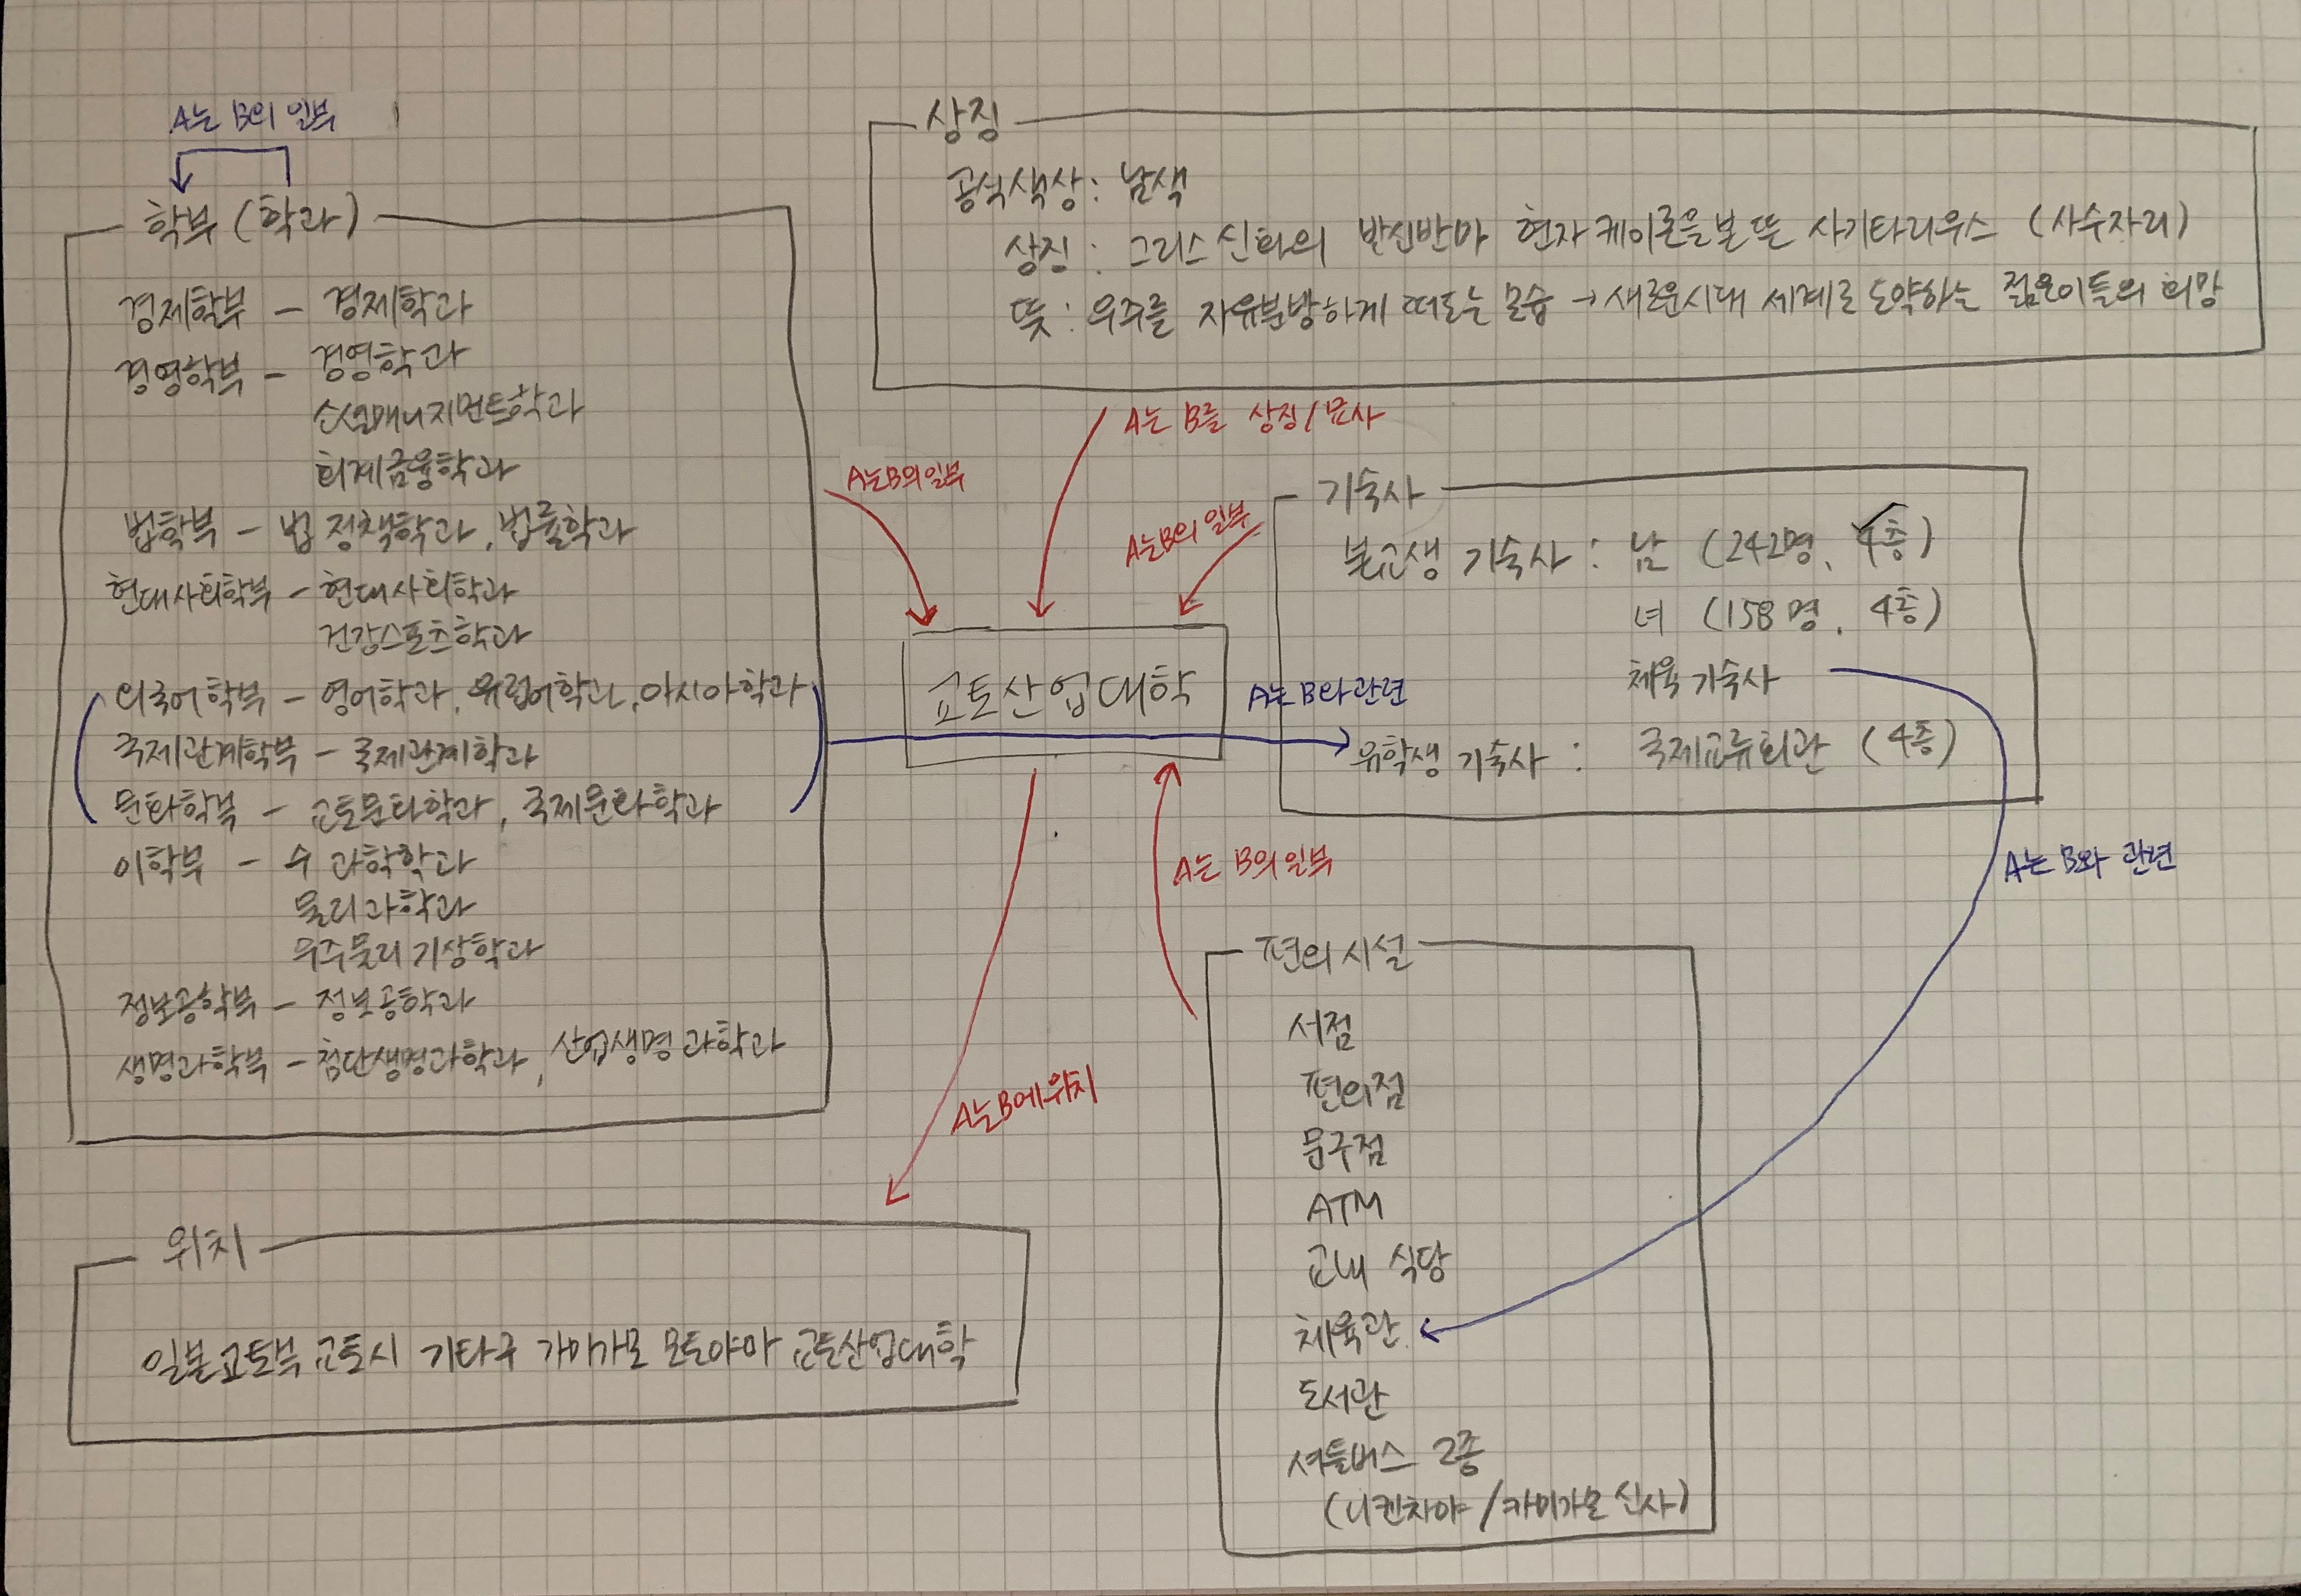 A는 B의 일부
학부 (학과)
경제학부 - 경제학과
경영학부 - 경영학과
소셜매니지먼트학과
회계금융학과
법학부 - 법 정책학과, 법률학과
현대사회학부 - 현대사회학과
건강스포츠학과
외국어학부 - 영어학과, 유럽어학과, 아시아학과
국제관계학부 - 국제관계학과
문화학부 - 교토문화학과, 국제문화학과
이학부 - 수 과학학과
물리과학과
우주물리 기상학과
정보공학부 - 정보공학과
생명과학부 - 첨단생명과학과, 산업생명 과학과
상징
공식색상: 남색
상징 : 그리스 신화의 반신반마 현자 케이론을 본 뜬 사기타리우스 (사수자리)
뜻 : 우주를 자유분방하게 떠도는 모습 → 새로운시대 세계로 도약하는 젊은이들의 희망
A는 B를 상징/묘사
A는 B의 일부
A는 B의 일부
기숙사
본교생 기숙사 : 남 (242명, 4층)
녀 (158명, 4층)
체육 기숙사
유학생 기숙사 : 국제교류회관 (4층)
교토산업대학
A는 B와 관련
A는 B의 일부
A는 B와 관련
A는 B에 위치
편의 시설
서점
편의점
문구점
ATM
교내 식당
체육관
도서관
셔틀버스 2종
(니켄차야 / 카미가모 신사)
위치
일본 교토부 교토시 기타구 가미가모 모토야마 교토산업대학